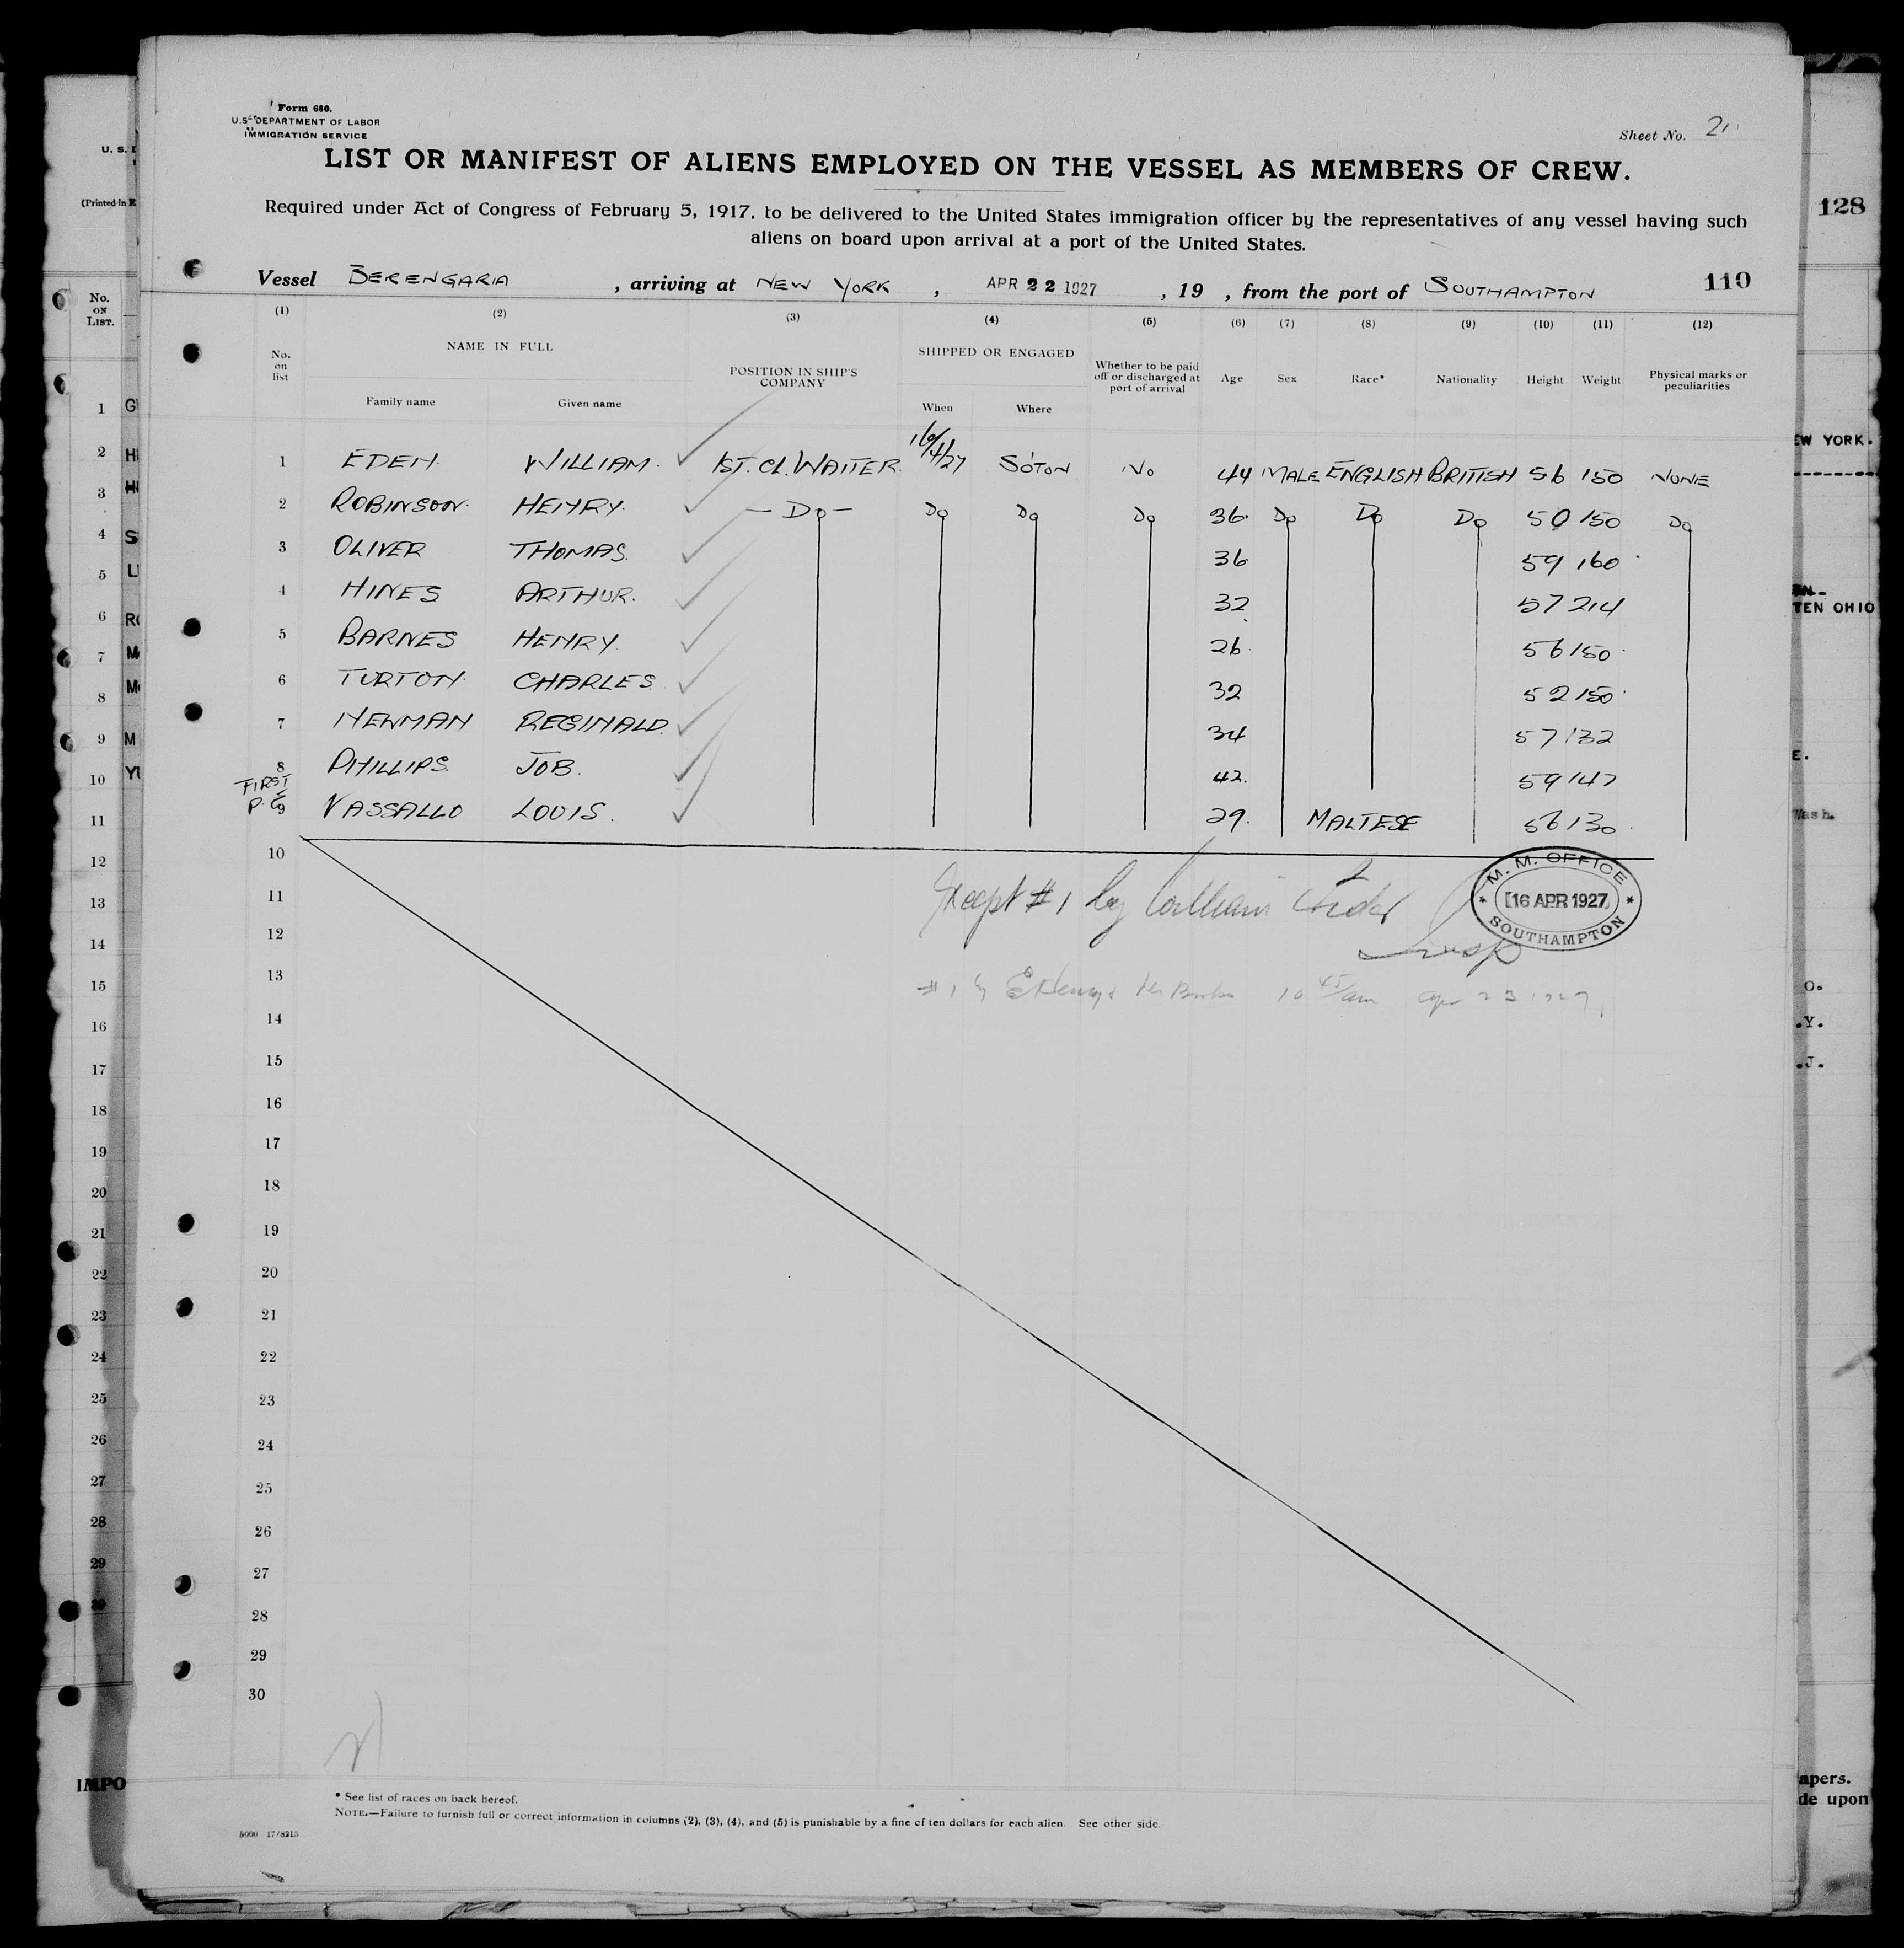 Form 680.
U.S. DEPARTMENT OF LABOR
IMMIGRATION SERVICE
Sheet No. 21
LIST OR MANIFEST OF ALIENS EMPLOYED ON THE VESSEL AS MEMBERS OF CREW.
Required under Act of Congress of February 5, 1917, to be delivered to the United States immigration officer by the representatives of any vessel having such
aliens on board upon arrival at a port of the United States.
Vessel BERENGARIA, arriving at NEW YORK, APR 22 1927, 19 , from the port of SOUTHAMPTON 110
(1) (2) (3) (4) (5) (6) (7) (8) (9) (10) (11) (12)
No. on list
NAME IN FULL
Family name Given name
POSITION IN SHIP'S COMPANY
SHIPPED OR ENGAGED
When Where
Whether to be paid off or discharged at port of arrival
Age Sex Race* Nationality Height Weight
Physical marks or peculiarities
1 EDEN. WILLIAM. 1ST. CL. WAITER. 16/4/27 SO'TON NO 44 MALE ENGLISH BRITISH 56 150 NONE
2 ROBINSON. HENRY. — DO — DO DO DO 36. DO DO DO 50 150 DO
3 OLIVER THOMAS. 36 59 160
4 HINES ARTHUR. 32 57 214
5 BARNES HENRY. 26. 56 150
6 TURTON. CHARLES. 32 52 150
7 NEWMAN REGINALD. 34 57 132
8 PHILLIPS. JOB. 42. 59 147
FIRST
P. G
9 VASSALLO LOUIS. 29. MALTESE 56 130
10
Except #1 by
M. M. OFFICE
16 APR 1927
SOUTHAMPTON
11
12
Insp
13
#1 10 45/am Apr 23 1927
14
15
16
17
18
19
20
21
22
23
24
25
26
27
28
29
30
* See list of races on back hereof.
NOTE.—Failure to furnish full or correct information in columns (2), (3), (4), and (5) is punishable by a fine of ten dollars for each alien. See other side.
U. S.
(Printed in
No.
ON
LIST.
1
2
3
4
5
6
7
8
9
10
11
12
13
14
15
16
17
18
19
20
21
22
23
24
25
26
27
28
29
IMPO
128
EW YORK.
TEN OHIO
E.
Wash.
O.
.Y.
.J.
apers.
de upon